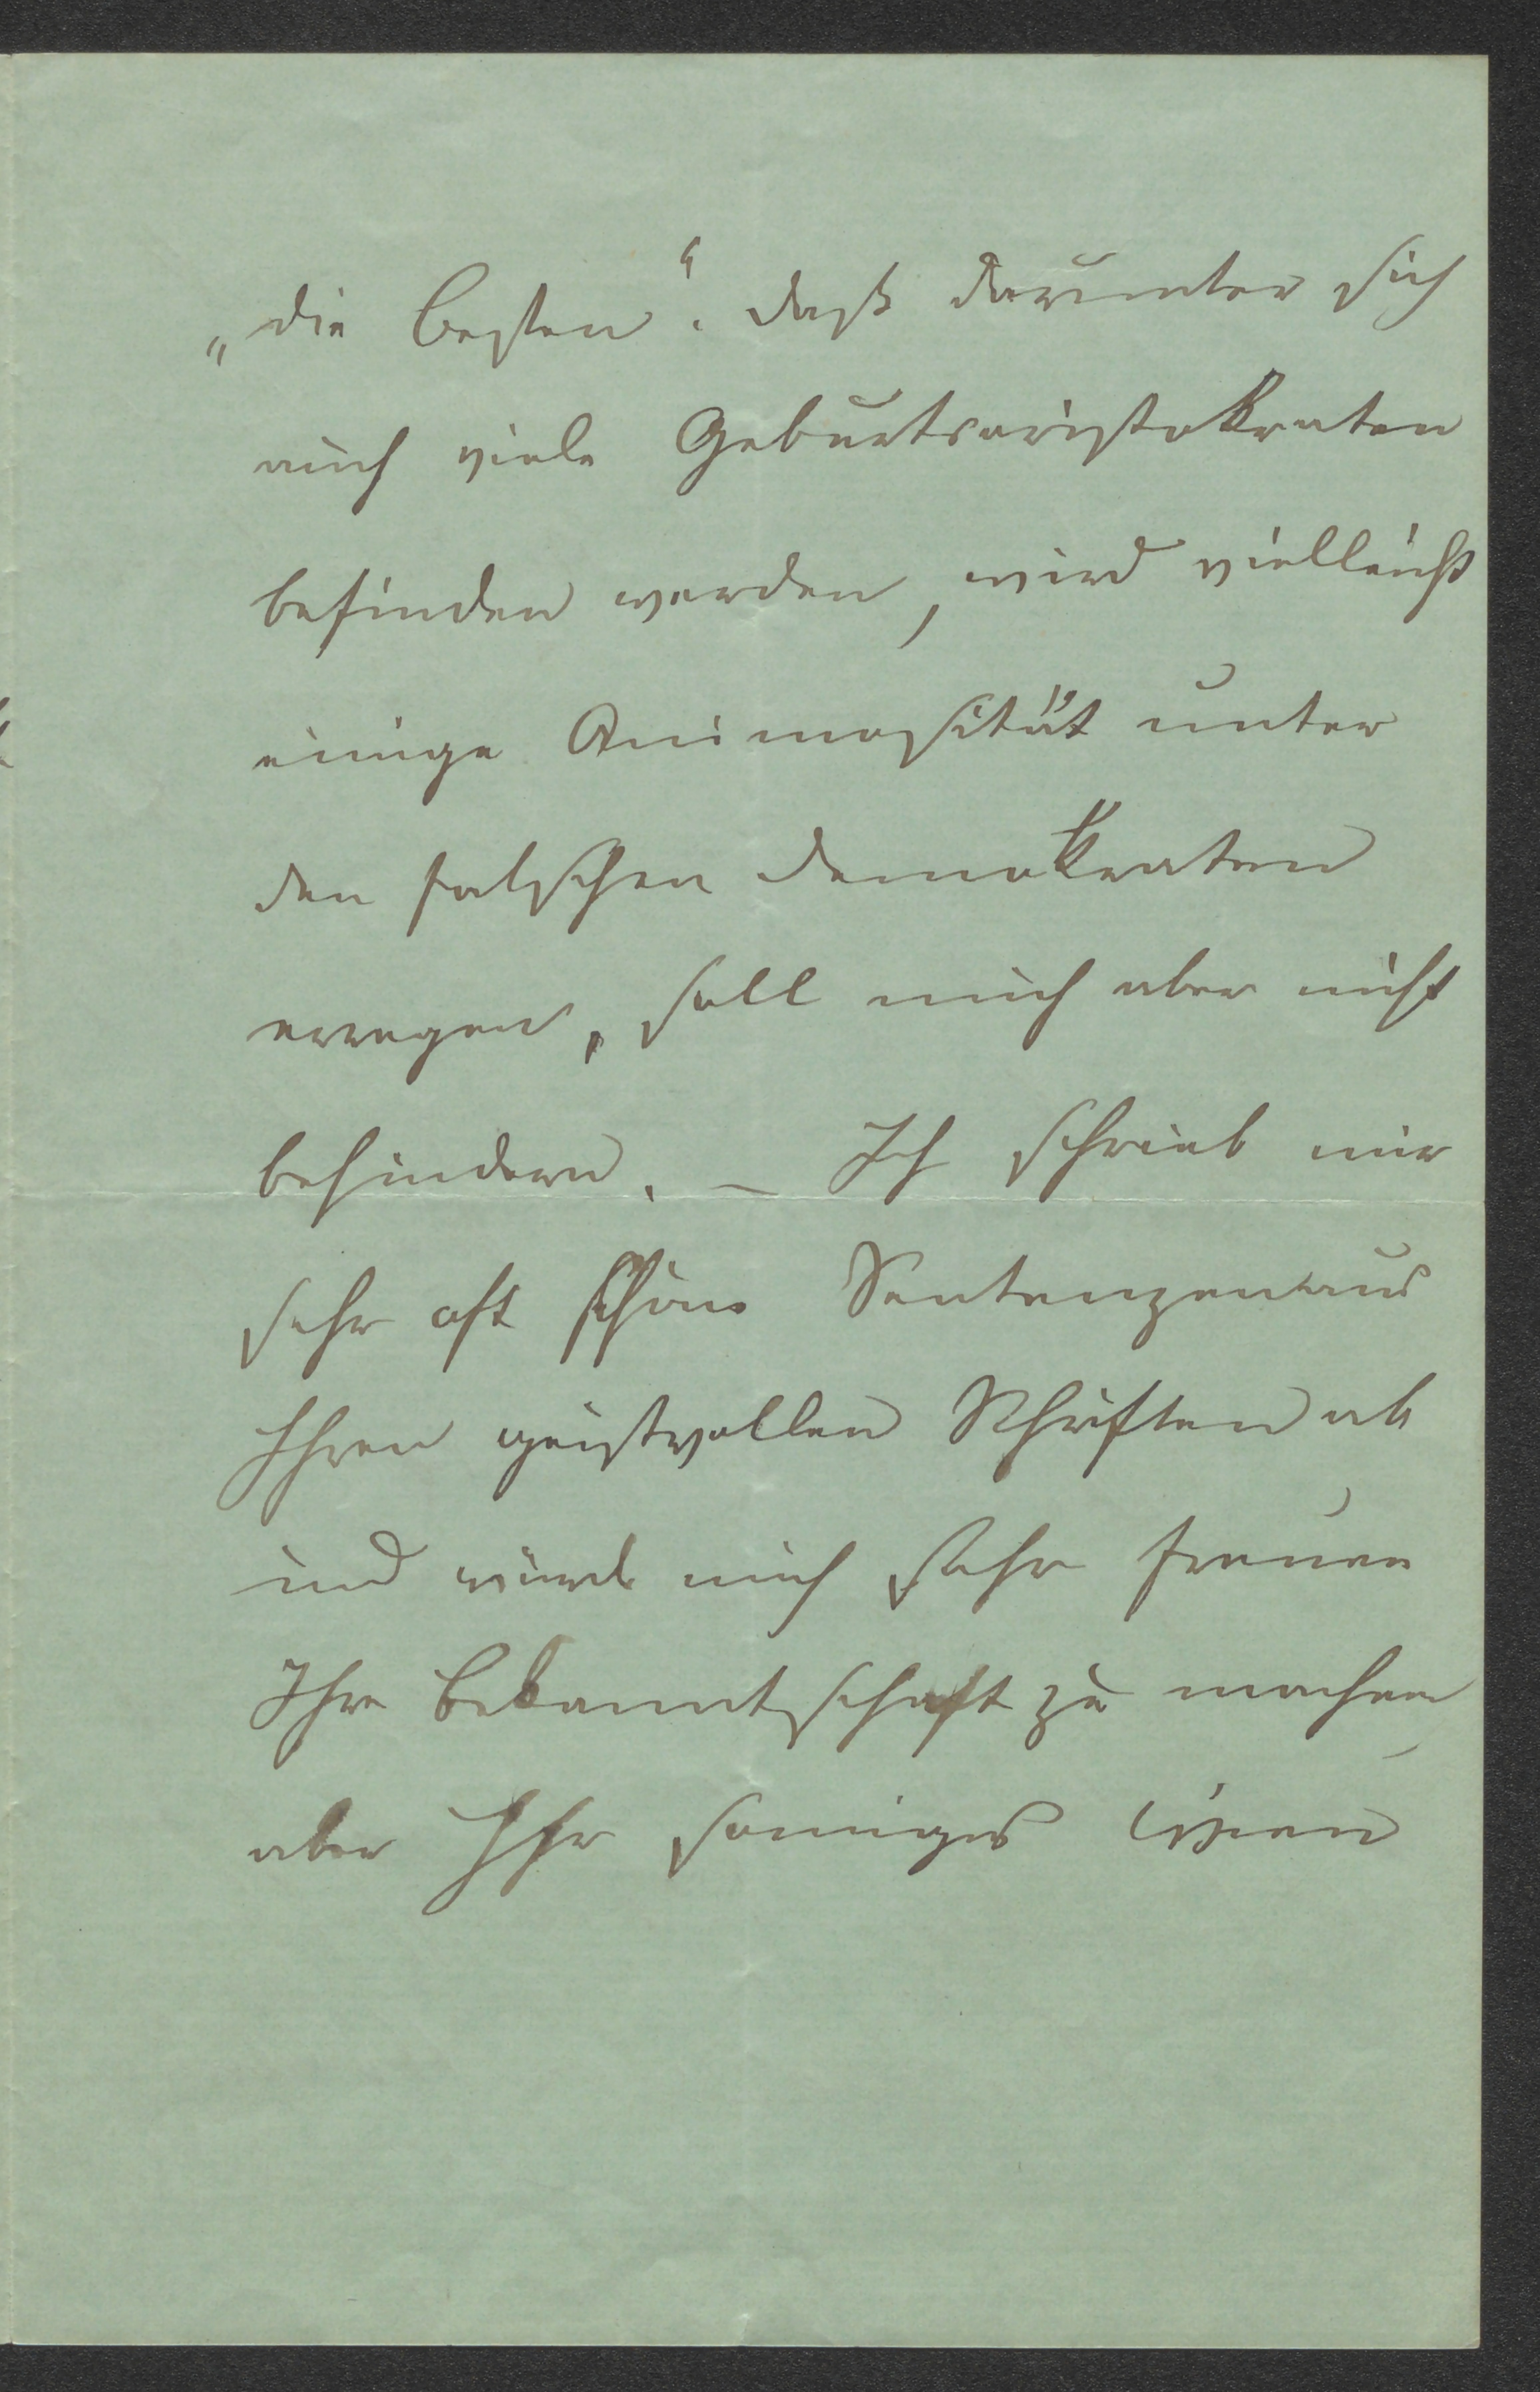 „die besten“. daß darunter sich
auch viele Geburtsaristokraten
befinden werden, wird vielleicht
einige Animosität unter
den falschen Demokraten
erregen, soll mich aber nicht
behindern. – Ich schrieb mir
sehr oft schöne Sentenzen aus
Ihren geistvollen Schriften ab
und würde mich sehr freuen
Ihre Bekanntschaft zu machen
aber Ihr sonniges